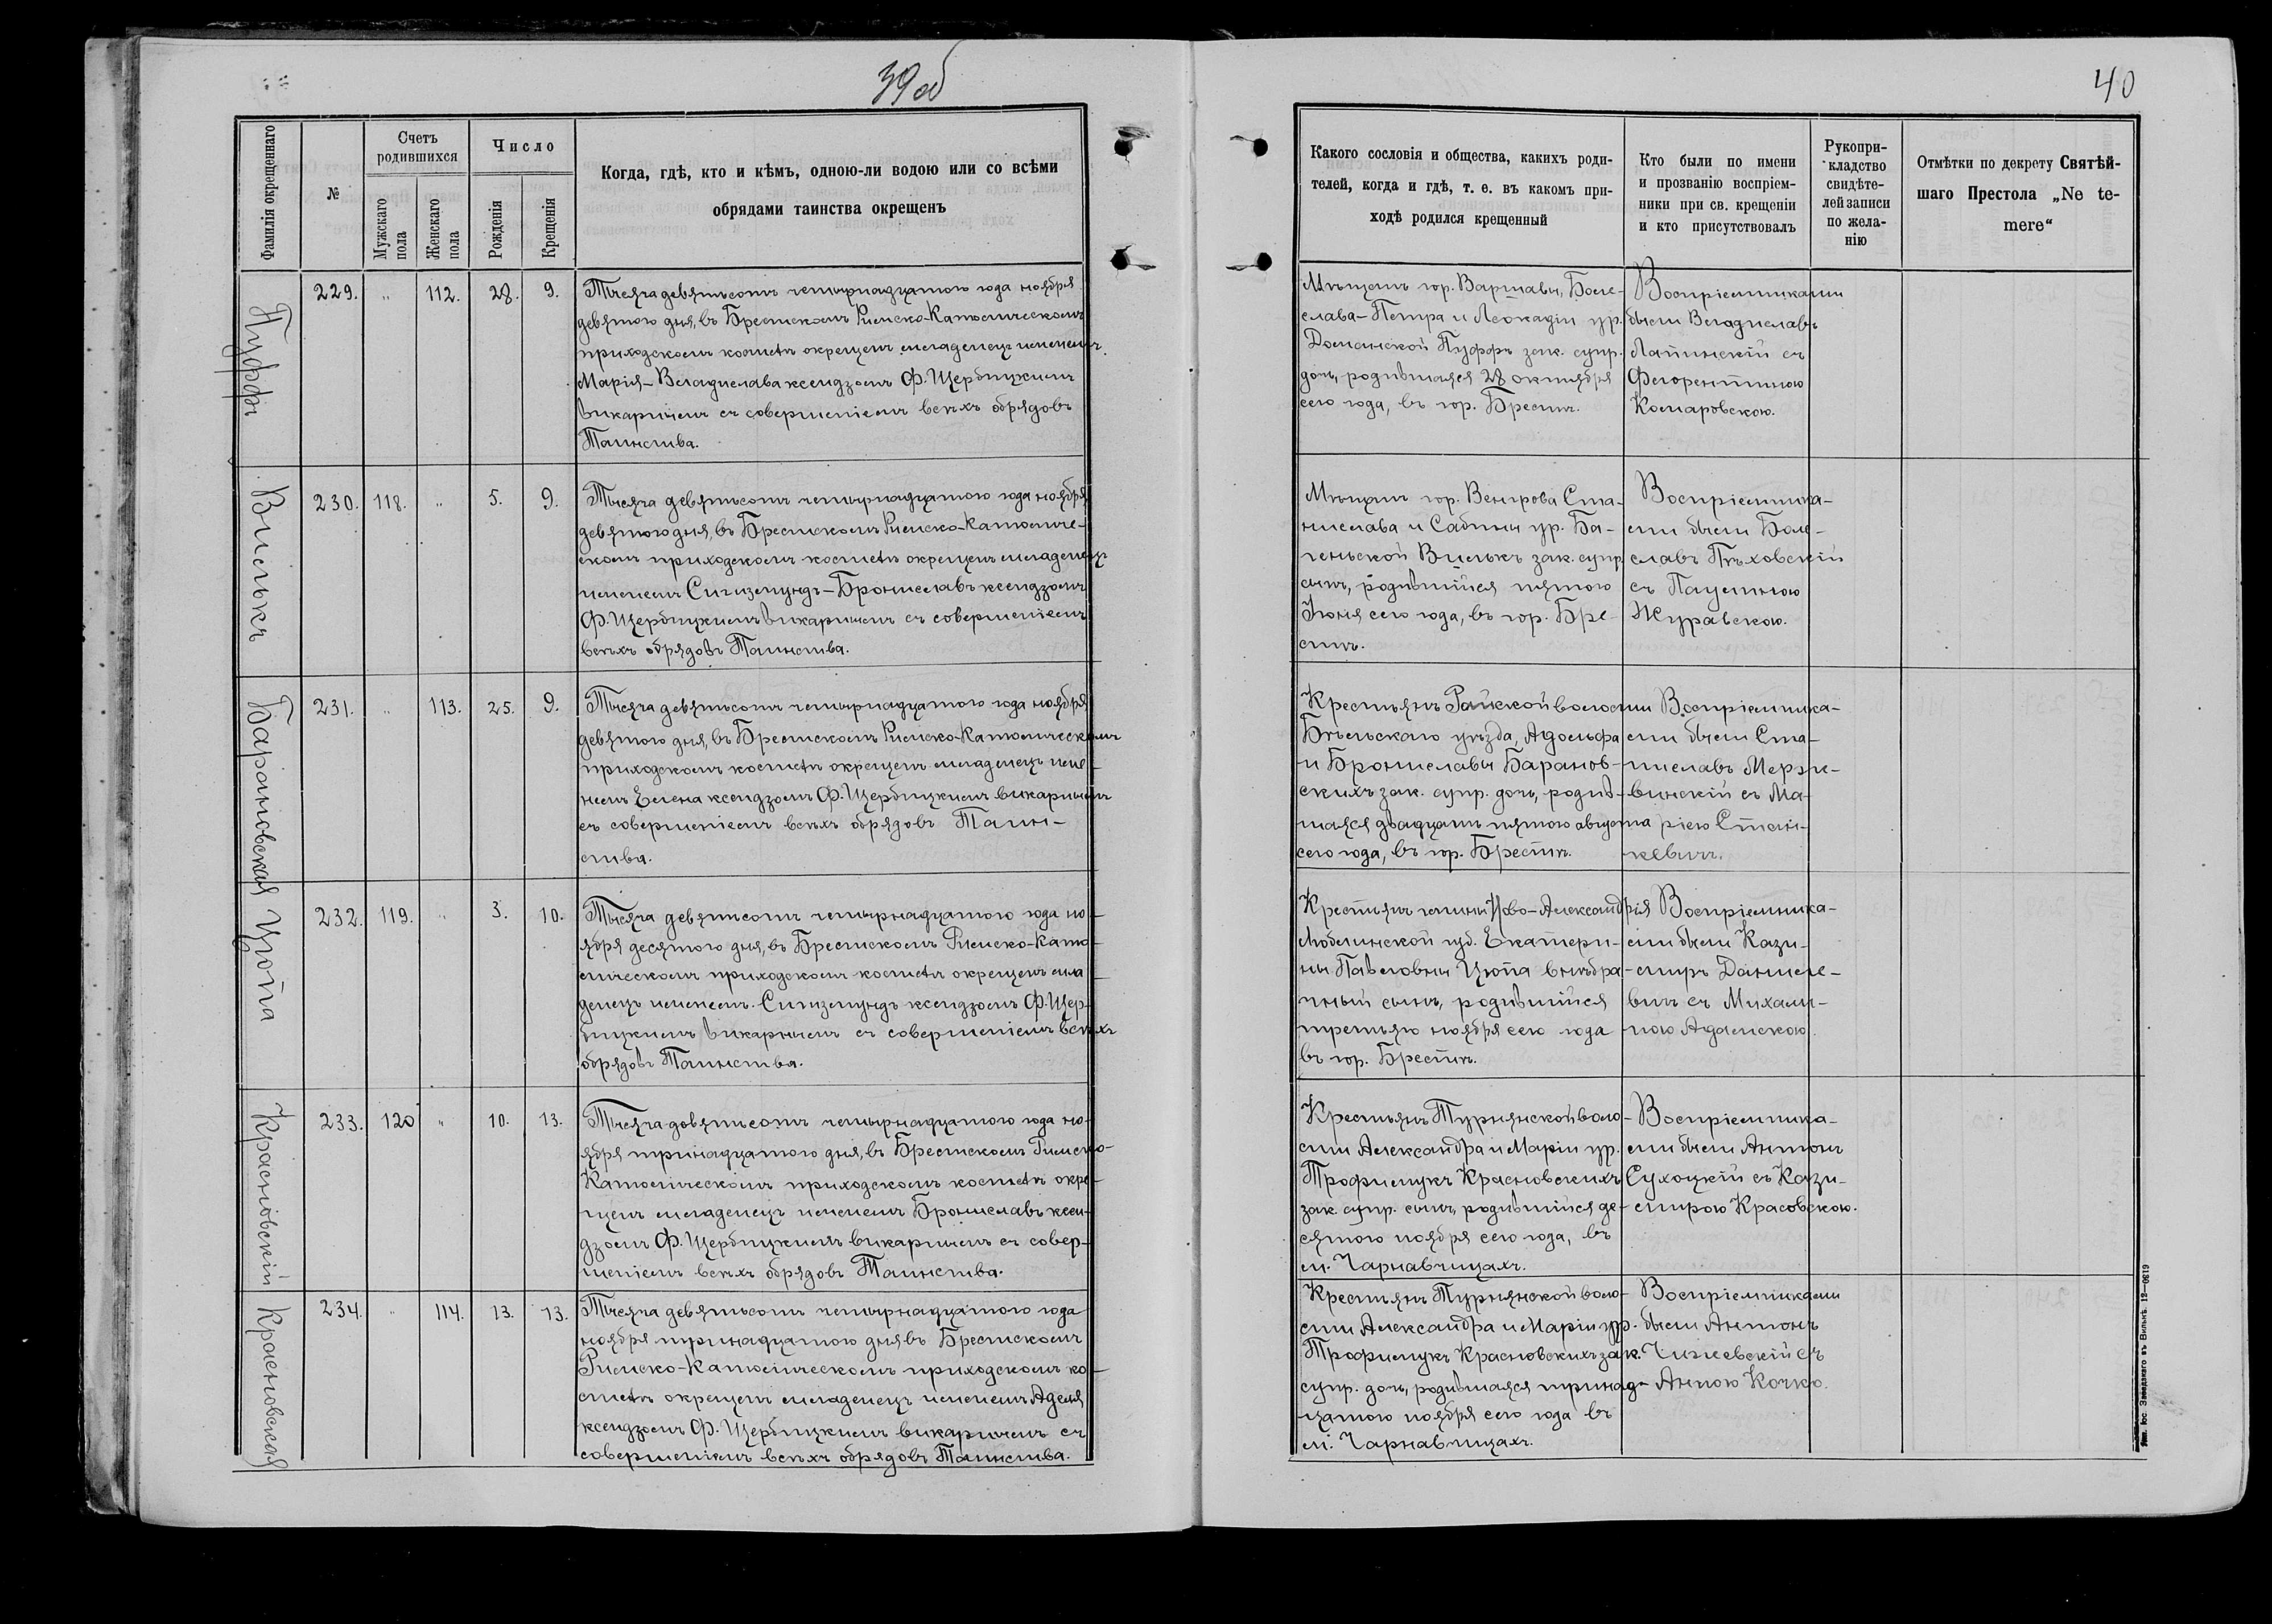 39об
Фамилія окрещеннаго
№
Счетъ
родившихся
Мужскаго
пола
Женскаго
пола
Число
Рожденія
Крещенія
Когда, гдѣ, кто и кѣмъ, одною-ли водою или со всѣми
обрядами таинства окрещенъ
Пуффъ
229.
"
112.
28.
9.
Тысяча девятьсотъ четырнадцатого года ноября
девятого дня, въ Брестскомъ Римско-Католическомъ
приходскомъ костелѣ окрещенъ младенецъ именемъ
Марія-Владислава ксендзомъ Ф. Щербицкимъ
викарнымъ съ совершеніемъ всѣхъ обрядовъ
Таинства.
Вилькъ
230.
118.
"
5.
9.
Тысяча девятьсотъ четырнадцатого года ноября
девятого дня, въ Брестскомъ Римско-Католиче-
скомъ приходскомъ костелѣ окрещенъ младенецъ
именемъ Сигизмундъ-Брониславъ ксендзомъ
Ф. Щербицкимъ викарнымъ съ совершеніемъ
всѣхъ обрядовъ Таинства.
Барановская
231.
"
113.
25.
9.
Тысяча девятьсотъ четырнадцатого года ноября
девятого дня, въ Брестскомъ Римско-Католическомъ
приходскомъ костелѣ окрещенъ младенецъ име-
немъ Елена ксендзомъ Ф. Щербицкимъ викарнымъ
съ совершеніемъ всѣхъ обрядовъ Таин-
ства.
Цюпа
232.
119.
"
3.
10.
Тысяча девятьсотъ четырнадцатого года но-
ября десятого дня, въ Брестскомъ Римско-Като-
лическомъ приходскомъ костелѣ окрещенъ мла-
денецъ именемъ Сигизмундъ ксендзомъ Ф. Щер-
бицкимъ викарнымъ съ совершеніемъ всѣхъ
обрядовъ Таинства.
Красновскій
233.
120
"
10.
13.
Тысяча довятьсотъ четырнадцатого года но-
ября тринадцатого дня, въ Брестскомъ Римско-
Католическомъ приходскомъ костелѣ окре-
щенъ младенецъ именемъ Брониславъ ксен-
дзомъ Ф. Щербицкимъ викарнымъ съ совер-
шеніемъ всѣхъ обрядовъ Таинства.
Красновская
234.
"
114.
13.
13.
Тысяча девятьсотъ четырнадцатого года
ноября тринадцатого дня въ Брестскомъ
Римско-Католическомъ приходскомъ ко-
стелѣ окрещенъ младенецъ именемъ Аделя
ксендзомъ Ф. Щербицкимъ викарнымъ съ
совершеніемъ всѣхъ обрядовъ Таинства.
40
Какого сословія и общества, какихъ роди-
телей, когда и гдѣ, т. е. въ какомъ при-
ходѣ родился крещенный
Кто были по имени
и прозванію воспріем-
ники при св. крещеніи
и кто присутствовалъ
Рукопри-
кладство
свидѣте-
лей записи
по жела-
нію
Отмѣтки по декрету Святѣй-
шаго Престола „Ne te-
mere“
Мѣщанъ гор. Варшавы, Боле-
слава-Петра и Леокадіи ур.
Доманской Пуффъ зак. супр.
дочь, родившаяся 28 октября
сего года, въ гор. Брестѣ.
Воспріемниками
были Владиславъ
Лапинскій съ
Флорентиною
Комаровскою.
Мѣщанъ гор. Венгрова Ста-
нислава и Сабины ур. Ба-
геньской Вилькъ зак. супр.
сынъ, родившійся пятого
Іюня сего года, въ гор. Бре-
стѣ.
Воспріемника-
ми были Боле-
славъ Пѣховскій
съ Паулиною
Журавскою.
Крестьянъ Райской волости
Бѣльскаго уѣзда, Адольфа
и Брониславы Баранов-
скихъ зак. супр. дочь, родив-
шаяся двадцать пятого августа
сего года, въ гор. Брестѣ.
Воспріемника-
ми были Ста-
ниславъ Мерзи-
винскій съ Ма-
ріею Стань-
кевичъ.
Крестьянъ гмины Ново-Александрія
Люблинской губ. Екатери-
ны Павловны Цюпа внѣбра-
чный сынъ, родившійся
третьяго ноября сего года
въ гор. Брестѣ.
Воспріемника-
ми были Кази-
миръ Даниле-
вичъ съ Михали-
ною Адамскою.
Крестьянъ Турнянской воло-
сти Александра и Маріи ур.
Трофимукъ Красновскихъ
зак. супр. сынъ, родившійся де-
сятого ноября сего года, въ
м. Чарнавчицахъ.
Воспріемника-
ми были Антонъ
Сухоцкій съ Кази-
мирою Красовскою.
Крестьянъ Турнянской воло-
сти Александра и Маріи ур.
Трофимукъ Красновскихъ зак.
супр. дочь, родившаяся тринад-
цатого ноября сего года въ
м. Чарнавчицахъ.
Воспріемниками
были Антонъ
Чижевскій съ
Анною Кочко.
Завадзкаго въ Вильнѣ. 12—0819